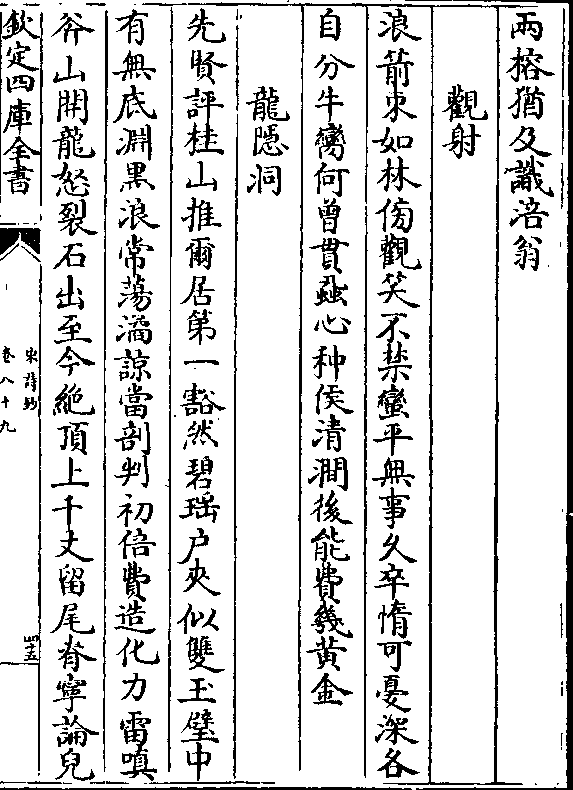 兩榕猶及識涪翁
觀射
浪箭束如林傍觀笑不禁蠻平無事久卒惰可憂深各
自分牛臠何曾貫蝨心种侯清澗後能費幾黄金
龍隱洞
先賢評桂山推爾居第一豁然碧瑶户夾似雙玉壁中
有無底淵黒浪常蕩潏諒當剖判初倍費造化力雷嗔
斧山開龍怒裂石出至今絶頂上千丈留尾脊寧論兒
欽定四庫全書
宋詩鈔
卷八十九
四十五